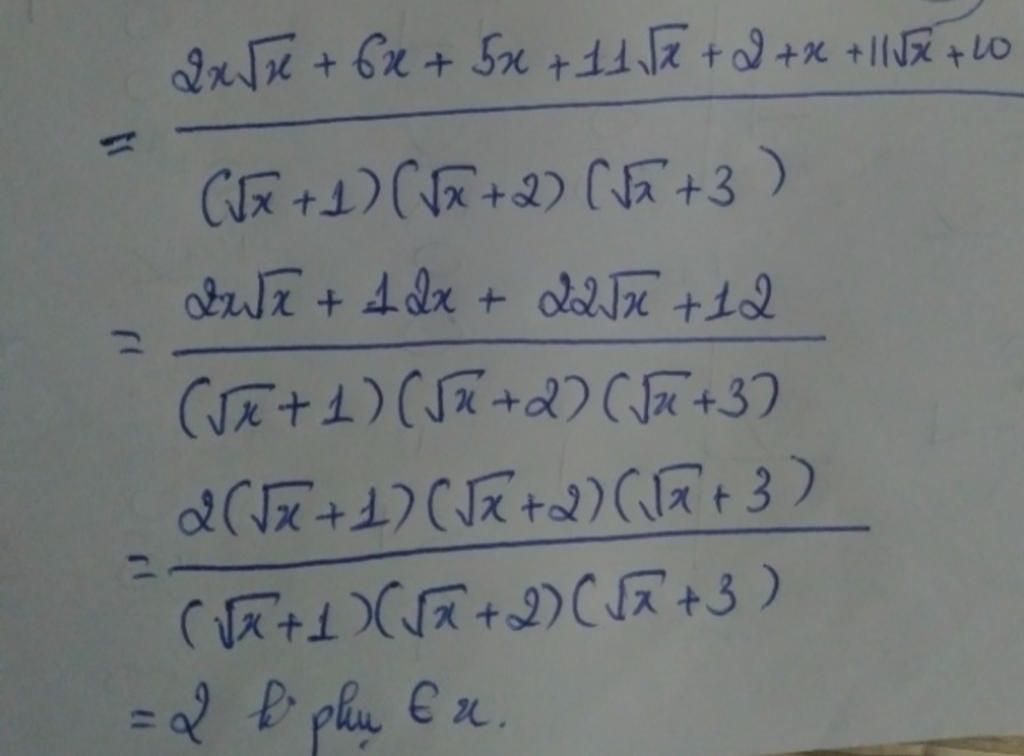 = (2x√x + 6x + 5x + 11√x + 2 + x + 11√x + 10) / ((√x + 1)(√x + 2)(√x + 3))
= (2x√x + 12x + 22√x + 12) / ((√x + 1)(√x + 2)(√x + 3))
= 2(√x + 1)(√x + 2)(√x + 3) / ((√x + 1)(√x + 2)(√x + 3))
= 2 k phụ ∈ x.